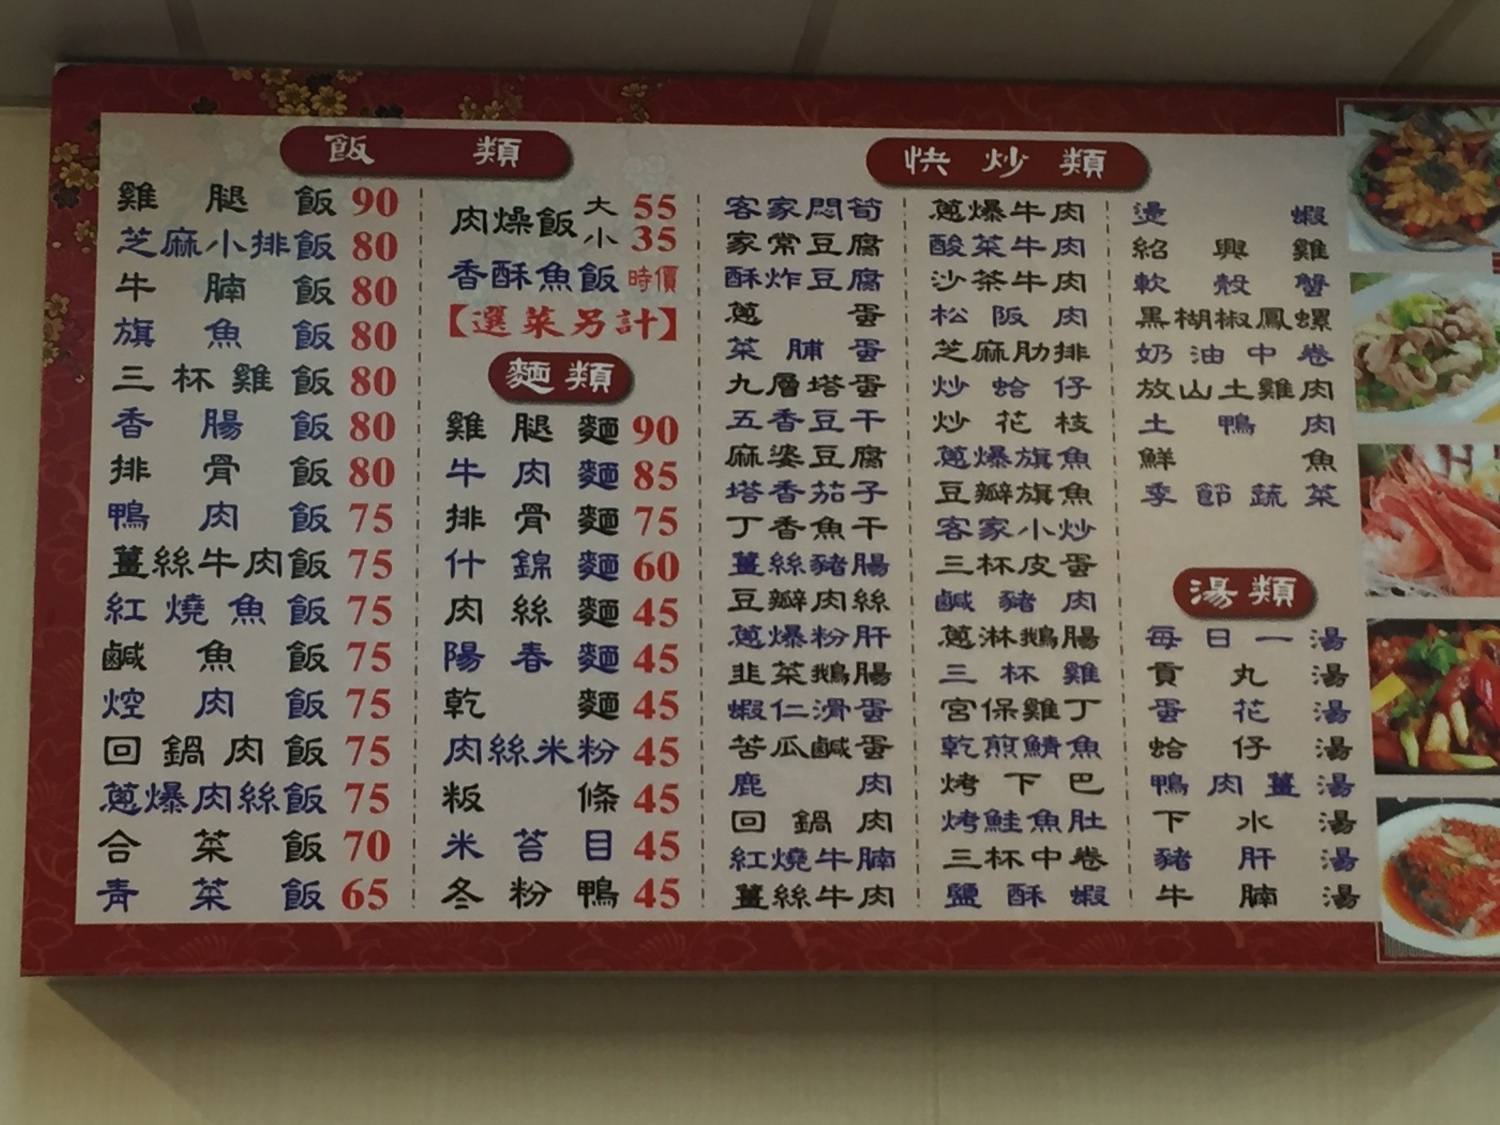 飯類
雞腿飯 90
芝麻小排飯 80
牛腩飯 80
旗魚飯 80
三杯雞飯 80
香腸飯 80
排骨飯 80
鴨肉飯 75
薑絲牛肉飯 75
紅燒魚飯 75
鹹魚飯 75
焢肉飯 75
回鍋肉飯 75
蔥爆肉絲飯 75
合菜飯 70
青菜飯 65
肉燥飯 大 55
小 35
香酥魚飯 時價
【選菜另計】
麵類
雞腿麵 90
牛肉麵 85
排骨麵 75
什錦麵 60
肉絲麵 45
陽春麵 45
乾麵 45
肉絲米粉 45
粄條 45
米苔目 45
冬粉鴨 45
快炒類
客家悶筍
家常豆腐
酥炸豆腐
蔥蛋
菜脯蛋
九層塔蛋
五香豆干
麻婆豆腐
塔香茄子
丁香魚干
薑絲豬腸
豆瓣肉絲
蔥爆粉肝
韭菜鵝腸
蝦仁滑蛋
苦瓜鹹蛋
鹿肉
回鍋肉
紅燒牛腩
薑絲牛肉
蔥爆牛肉
酸菜牛肉
沙茶牛肉
松阪肉
芝麻肋排
炒蛤仔
炒花枝
蔥爆旗魚
豆瓣旗魚
客家小炒
三杯皮蛋
鹹豬肉
蔥淋鵝腸
三杯雞
宮保雞丁
乾煎鯖魚
烤下巴
烤鮭魚肚
三杯中卷
鹽酥蝦
燙蝦
紹興雞
軟殼蟹
黑椒鳳螺
奶油中卷
放山土雞肉
土鴨肉
鮮魚
季節蔬菜
湯類
每日一湯
貢丸湯
蛋花湯
蛤仔湯
鴨肉薑湯
下水湯
豬肝湯
牛腩湯